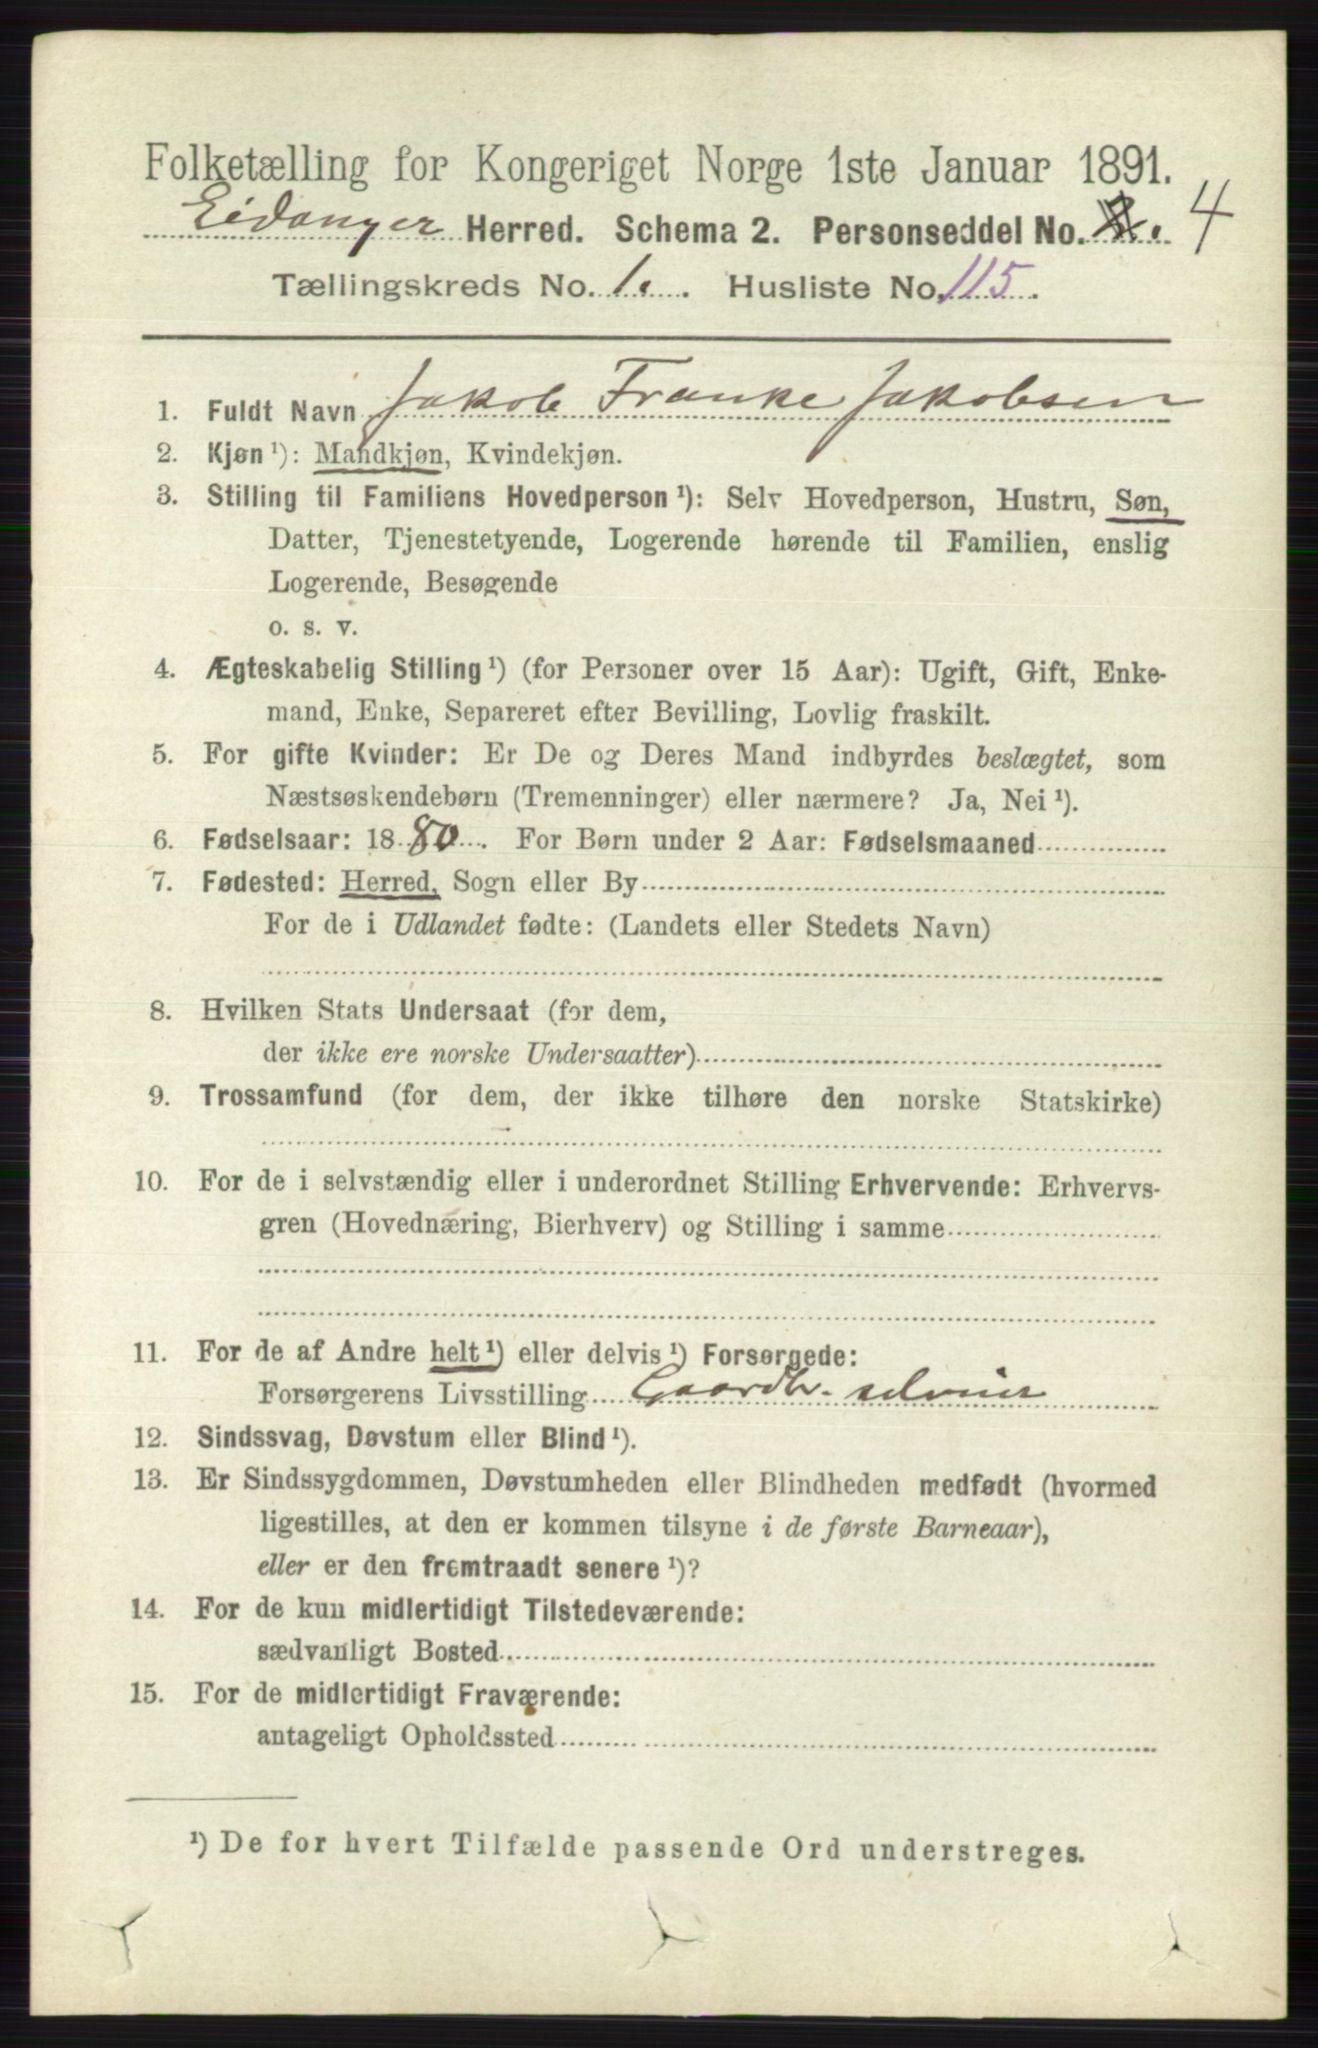 Folketælling for Kongeriget Norge 1ste Januar 1891.
Eidanger Herred. Schema 2. Personseddel No. 4
Tællingskreds No. 1. Husliste No. 115.
1. Fuldt Navn Jakob Franke Jakobsen
2. Kjøn ¹): Mandkjøn, Kvindekjøn.
3. Stilling til Familiens Hovedperson ¹): Selv Hovedperson, Hustru, Søn,
Datter, Tjenestetyende, Logerende hørende til Familien, enslig
Logerende, Besøgende
o. s. v.
4. Ægteskabelig Stilling ¹) (for Personer over 15 Aar): Ugift, Gift, Enke-
mand, Enke, Separeret efter Bevilling, Lovlig fraskilt.
5. For gifte Kvinder: Er De og Deres Mand indbyrdes beslægtet, som
Næstsøskendebørn (Tremenninger) eller nærmere? Ja, Nei ¹).
6. Fødselsaar: 1880. For Børn under 2 Aar: Fødselsmaaned
7. Fødested: Herred, Sogn eller By
For de i Udlandet fødte: (Landets eller Stedets Navn)
8. Hvilken Stats Undersaat (for dem,
der ikke ere norske Undersaatter)
9. Trossamfund (for dem, der ikke tilhøre den norske Statskirke)
10. For de i selvstændig eller i underordnet Stilling Erhvervende: Erhvervs-
gren (Hovednæring, Bierhverv) og Stilling i samme
11. For de af Andre helt ¹) eller delvis ¹) Forsørgede:
Forsørgerens Livsstilling Gaardbr. selveier
12. Sindssvag, Døvstum eller Blind ¹).
13. Er Sindssygdommen, Døvstumheden eller Blindheden medfødt (hvormed
ligestilles, at den er kommen tilsyne i de første Barneaar),
eller er den fremtraadt senere ¹)?
14. For de kun midlertidigt Tilstedeværende:
sædvanligt Bosted
15. For de midlertidigt Fraværende:
antageligt Opholdssted
¹) De for hvert Tilfælde passende Ord understreges.